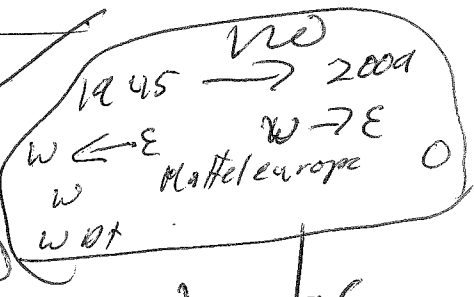 1945 → 2009
W ← E W → E
Mitteleuropa O
W
W Dt